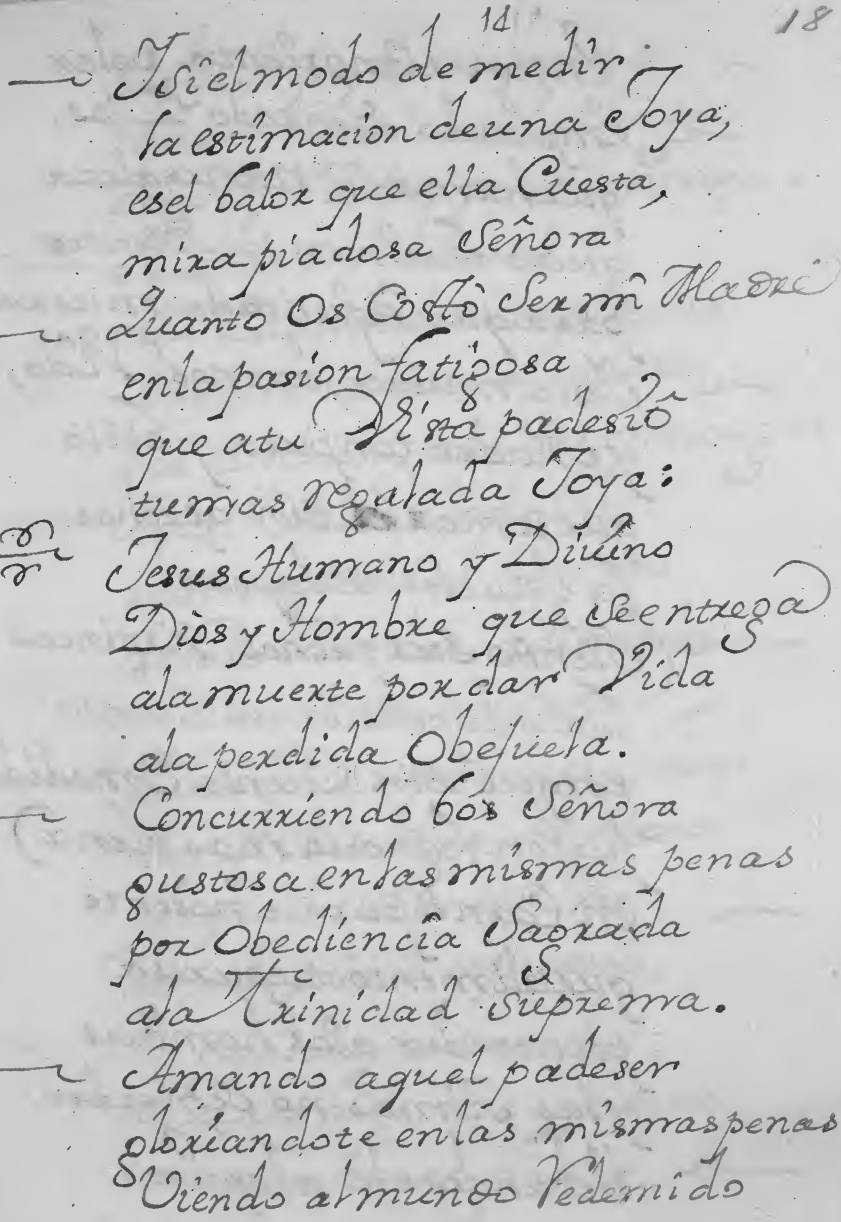 14
18
Isi el modo de medir
la estimacion de una Joya,
es el balor que ella Cuesta,
mira piadosa Señora
Quanto Os Costò Ser mi Madre
en la pasion fatigosa
que atu Vista padesiò
tu mas regalada Joya:
Jesus Humano y Divino
Dios y Hombre que Se entrega
ala muerte por dar Vida
ala perdida Obejuela.
Concurriendo bos Señora
gustosa en las mismas penas
por Obediencia Sagrada
ala Trinidad Suprema.
Amando aquel padeser
gloriandote en las mismas penas
Viendo al mundo Redemido